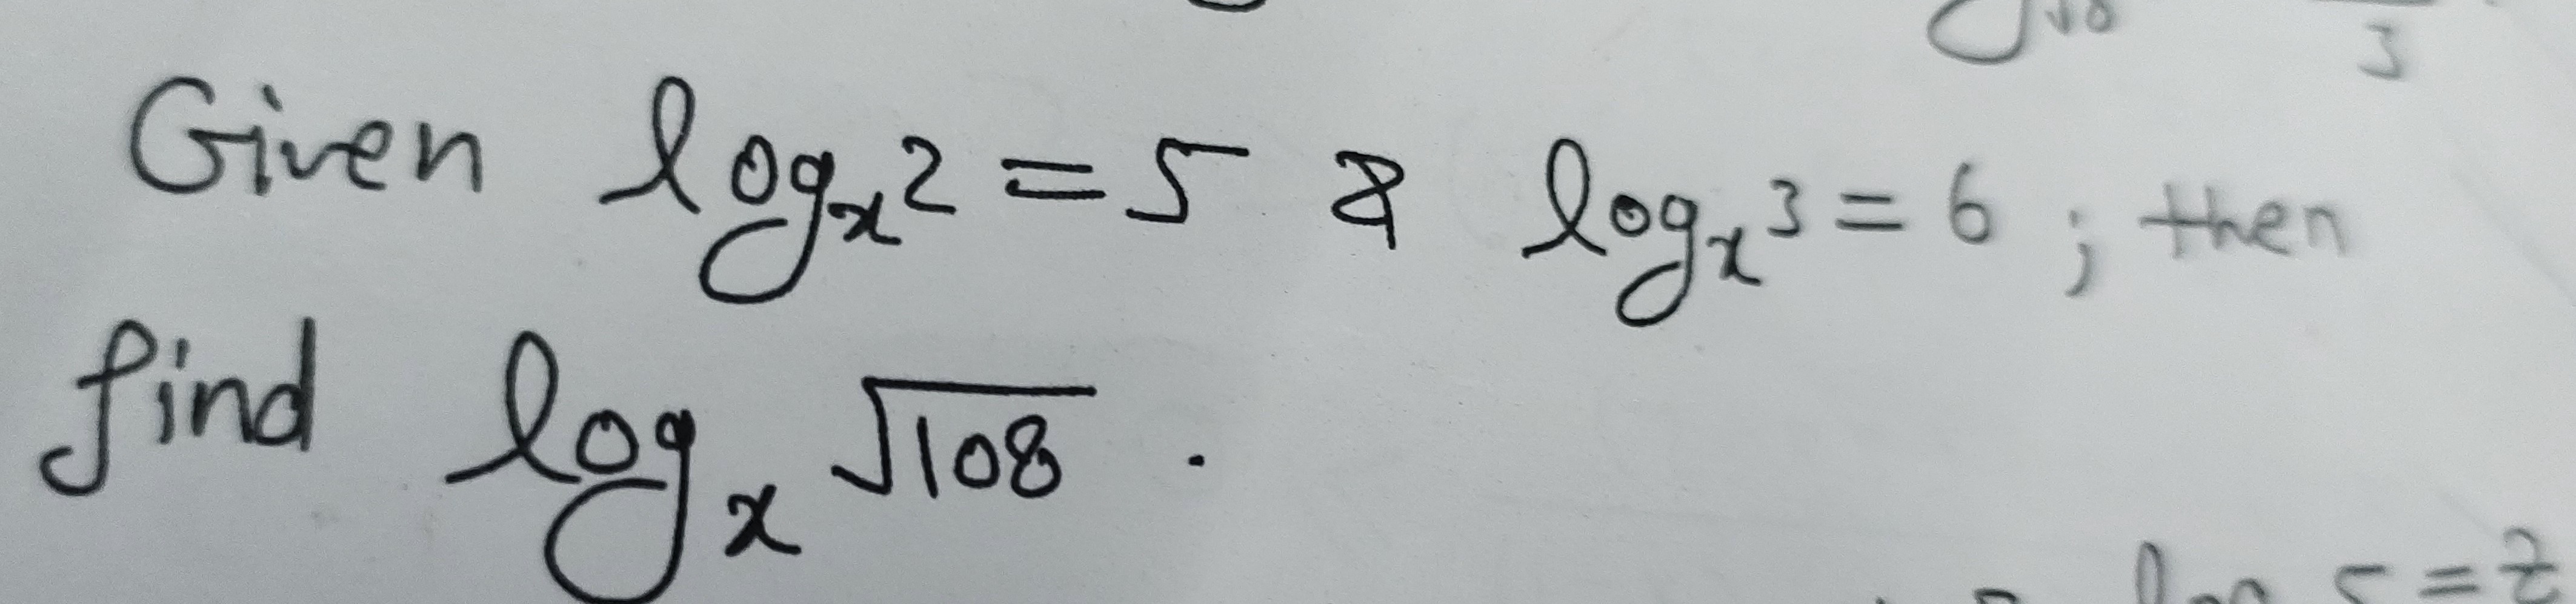 3
Given logₓ2 = 5 & logₓ3 = 6 ; then
find logₓ √108 .
5 = z